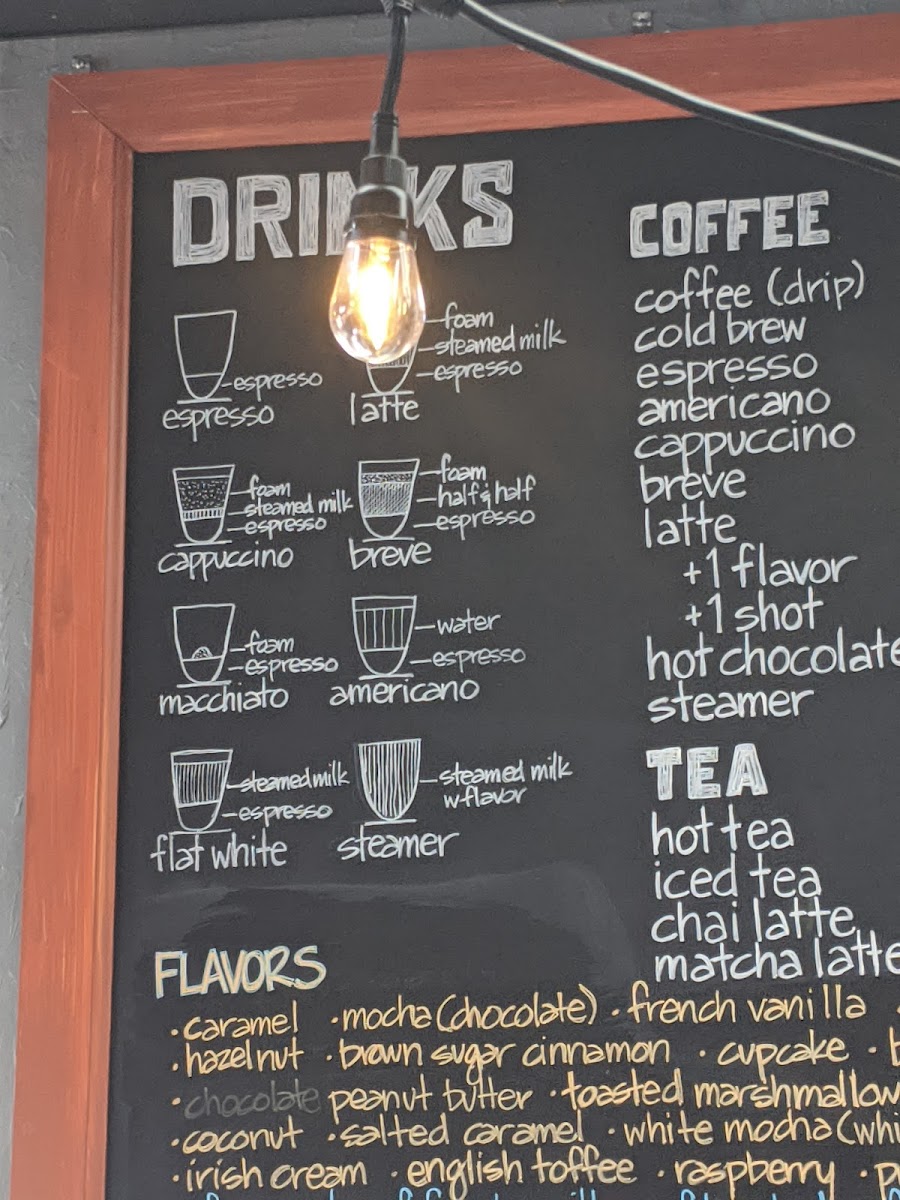 DRINKS
foam
steamed milk
espresso
espresso
espresso
latte
foam
steamed milk
espresso
cappuccino
foam
half & half
espresso
breve
foam
espresso
macchiato
water
espresso
americano
steamed milk
espresso
flat white
steamed milk
w-flavor
steamer
COFFEE
coffee (drip)
cold brew
espresso
americano
cappuccino
breve
latte
+1 flavor
+1 shot
hot chocolate
steamer
TEA
hot tea
iced tea
chai latte
matcha latte
FLAVORS
·caramel ·mocha (chocolate) ·french vanilla ·
·hazelnut ·brown sugar cinnamon ·cupcake ·
·chocolate peanut butter ·toasted marshmallow
·coconut ·salted caramel ·white mocha (whi
·irish cream ·english toffee ·raspberry ·